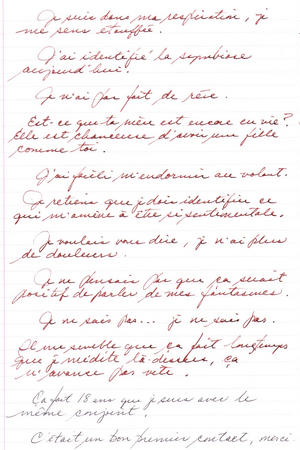 Je suis dans ma respiration, je
me sens étouffée.
J'ai identifié la symbiose
aujourd'hui.
Je n'ai pas fait de rêve.
Est-ce que ta mère est encore en vie?
Elle est chanceuse d'avoir une fille
comme toi.
J'ai failli m'endormir au volant.
Je retiens que je dois identifier ce
qui m'amène à être si sentimentale.
Je voulais vous dire, je n'ai plus
de douleurs.
Je ne pensais pas que ça serait
positif de parler de mes fantasmes.
Je ne sais pas... je ne sais pas.
Il me semble que ça fait longtemps
que je médite là-dessus, ça
n'avance pas vite.
Ça fait 18 ans que je suis avec le
même conjoint.
C'était un bon premier contact, merci.